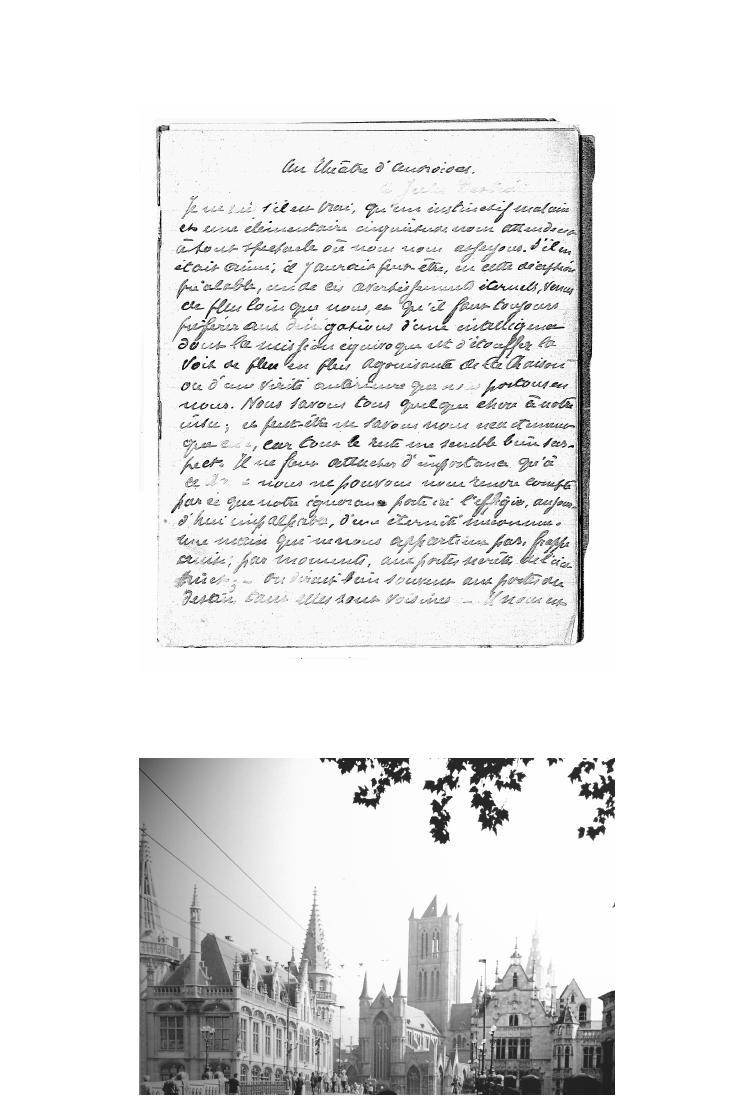 Un théâtre d'Androïdes.
Je ne sais s'il est vrai, qu'un instinctif malaise
et une élémentaire inquiétude nous attendent
à tout spectacle où nous nous asseyons. S'il en
était ainsi, il y aurait peut-être, en cette déception
préalable, un de ces avertissements éternels, venus
de plus loin que nous, et qu'il faut toujours
préférer aux d'une intelligence
dont la mission équivoque est d'étouffer la
voix de plus en plus agonisante de la Raison
ou d'une vérité antérieure que nous portons en
nous. Nous savons tous quelque chose à notre
insu; et peut-être ne savons nous exactement
que cela, car tout le reste me semble bien sus-
pect. Il ne faut attacher d'importance qu'à
ce nous ne pouvons nous rendre compte
parce que notre ignorance porte ici l'effigie, aujour-
d'hui impalpable, d'une éternité inconnue.
Une main qui ne nous appartient pas, frappe
ainsi, par moments, aux portes secrètes de l'ins
tinct; — on dirait bien souvent aux portes du
destin, tant elles sont voisines —